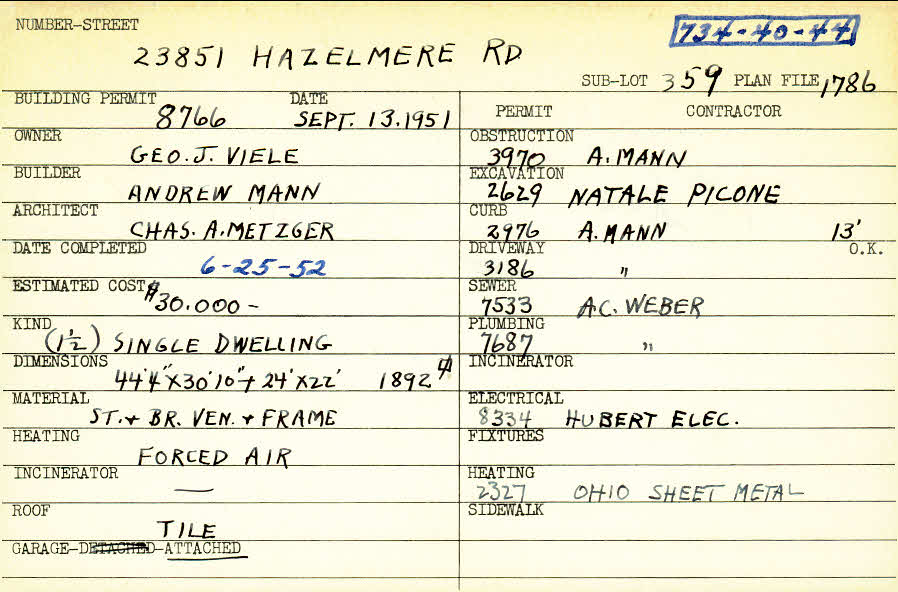 NUMBER-STREET
734-40-44
23851 HAZELMERE RD
SUB-LOT 359 PLAN FILE 1786
BUILDING PERMIT DATE
8766 SEPT. 13.1951
OWNER
GEO. J. VIELE
BUILDER
ANDREW MANN
ARCHITECT
CHAS. A. METZGER
DATE COMPLETED
6-25-52
ESTIMATED COST
$30.000-
KIND
(1½) SINGLE DWELLING
DIMENSIONS
44'4"X30'10"+ 24'X22' 1892
MATERIAL
ST. + BR. VEN. + FRAME
HEATING
FORCED AIR
INCINERATOR
—
ROOF
TILE
GARAGE-DETACHED-ATTACHED
PERMIT CONTRACTOR
OBSTRUCTION
3970 A. MANN
EXCAVATION
2629 NATALE PICONE
CURB
2976 A. MANN 13'
DRIVEWAY O.K.
3186 "
SEWER
7533 A.C. WEBER
PLUMBING
7687 "
INCINERATOR
ELECTRICAL
8334 HUBERT ELEC.
FIXTURES
HEATING
2327 OHIO SHEET METAL
SIDEWALK